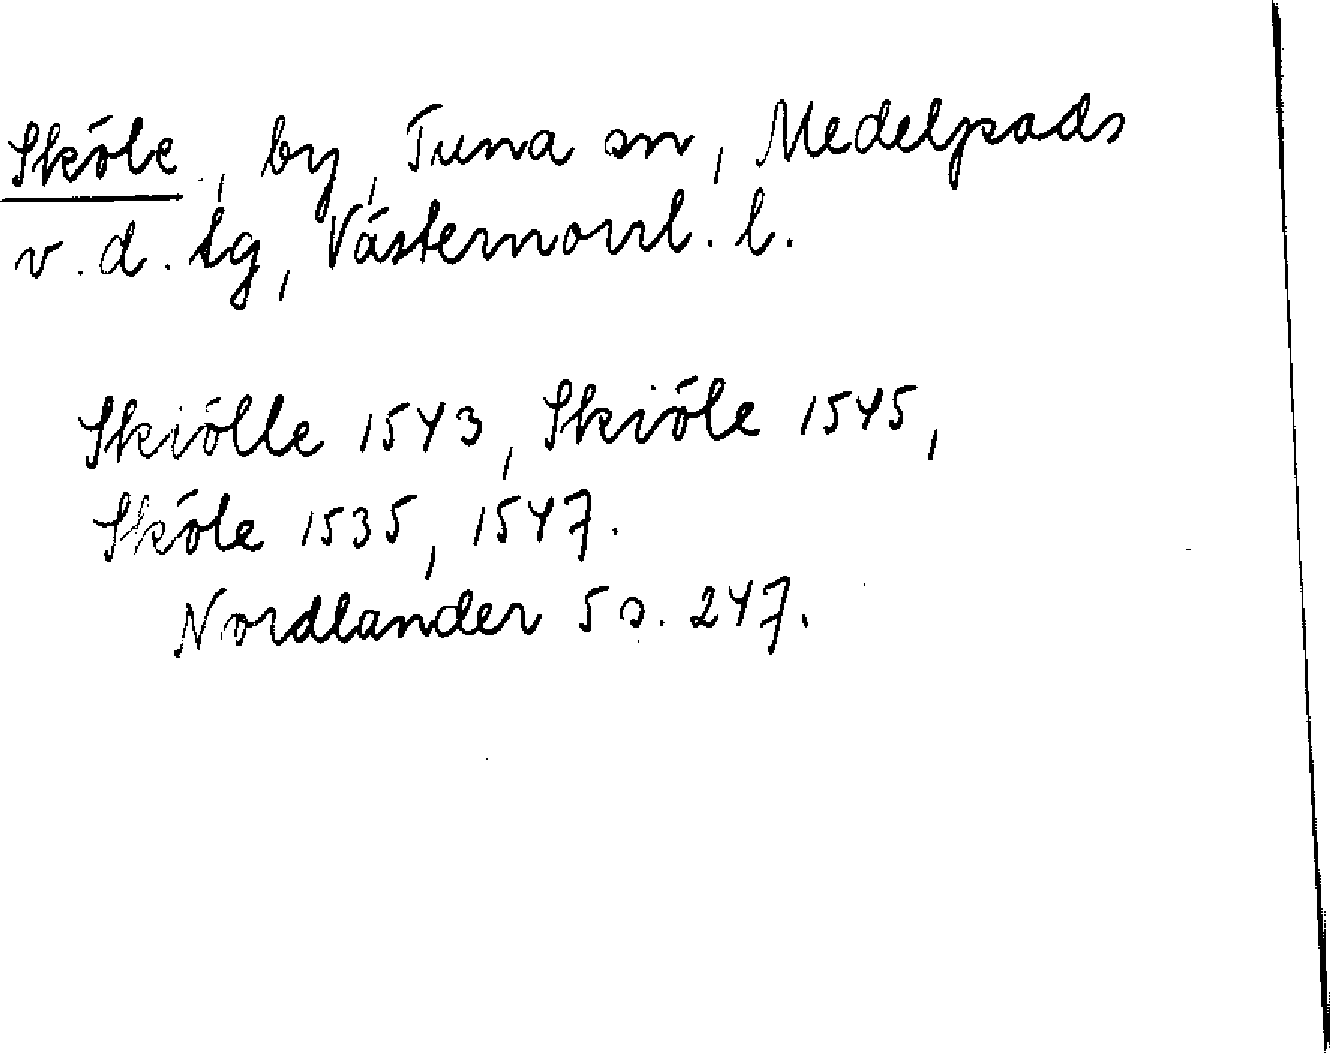 Sköle, by, Tuna sn, Medelpads
v. d. tg, Västernorrl. l.
Skiölle 1543, Skiöle 1545,
Sköle 1535, 1547.
Nordlander 5 s. 247.